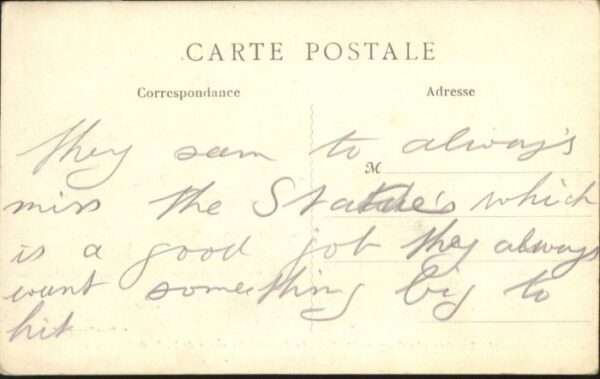 CARTE POSTALE
Correspondance Adresse
they seam to alway's
M
miss the Statue's which
is a good job they always
want something big to
hit